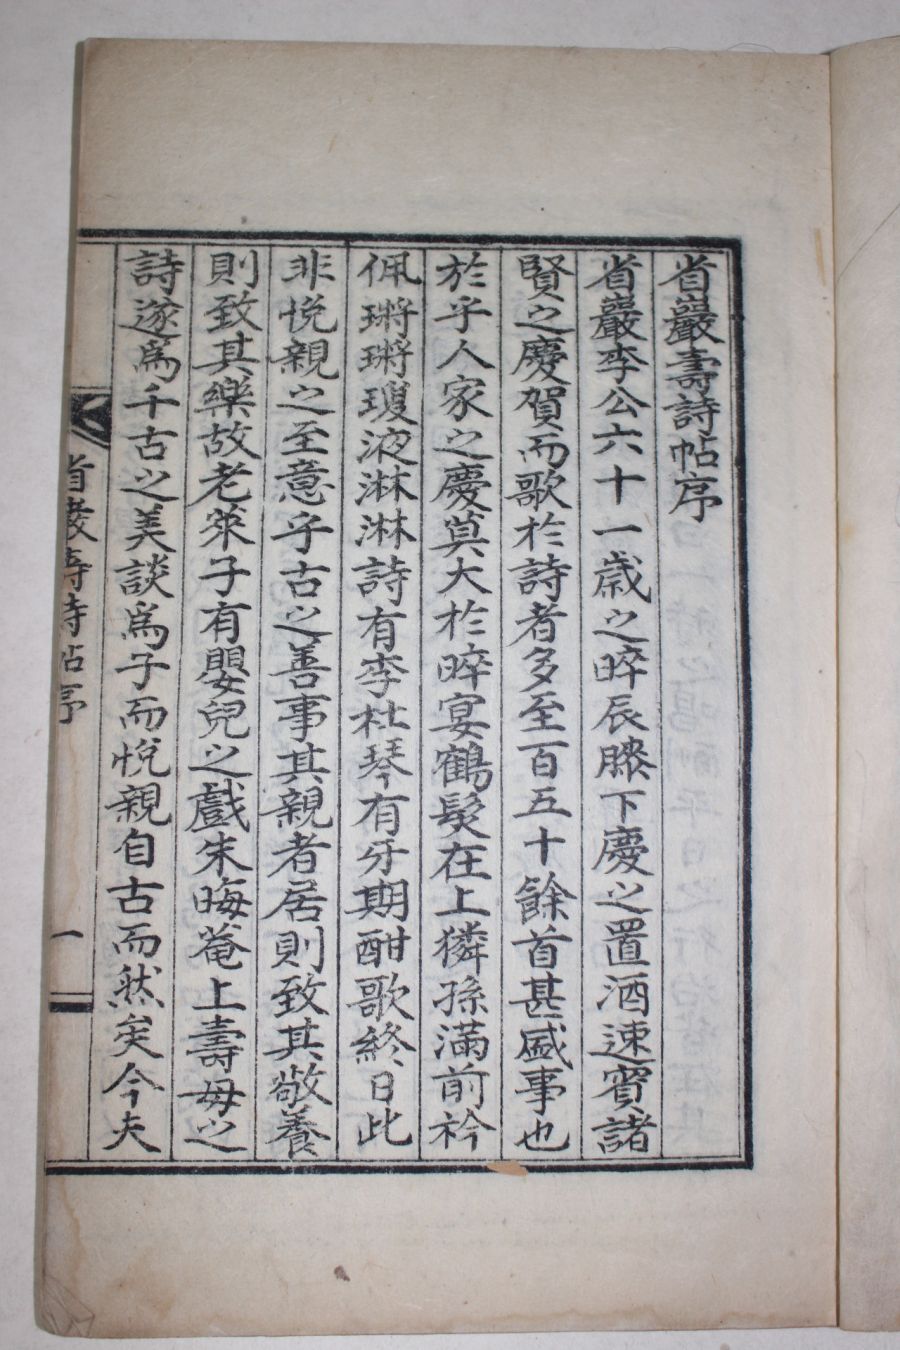 省巖壽詩帖序
省巖李公六十一歲之晬辰膝下慶之置酒速賓諸
賢之慶賀而歌於詩者多至百五十餘首甚盛事也
於乎人家之慶莫大於晬宴鶴髮在上獜孫滿前衿
佩璛璛瓊液淋淋詩有李杜琴有牙期酣歌終日此
非悅親之至意乎古之善事其親者居則致其敬養
則致其樂故老萊子有嬰兒之戲朱晦菴上壽母之
詩遂爲千古之美談爲子而悅親自古而然矣今夫
省巖壽詩帖序
一